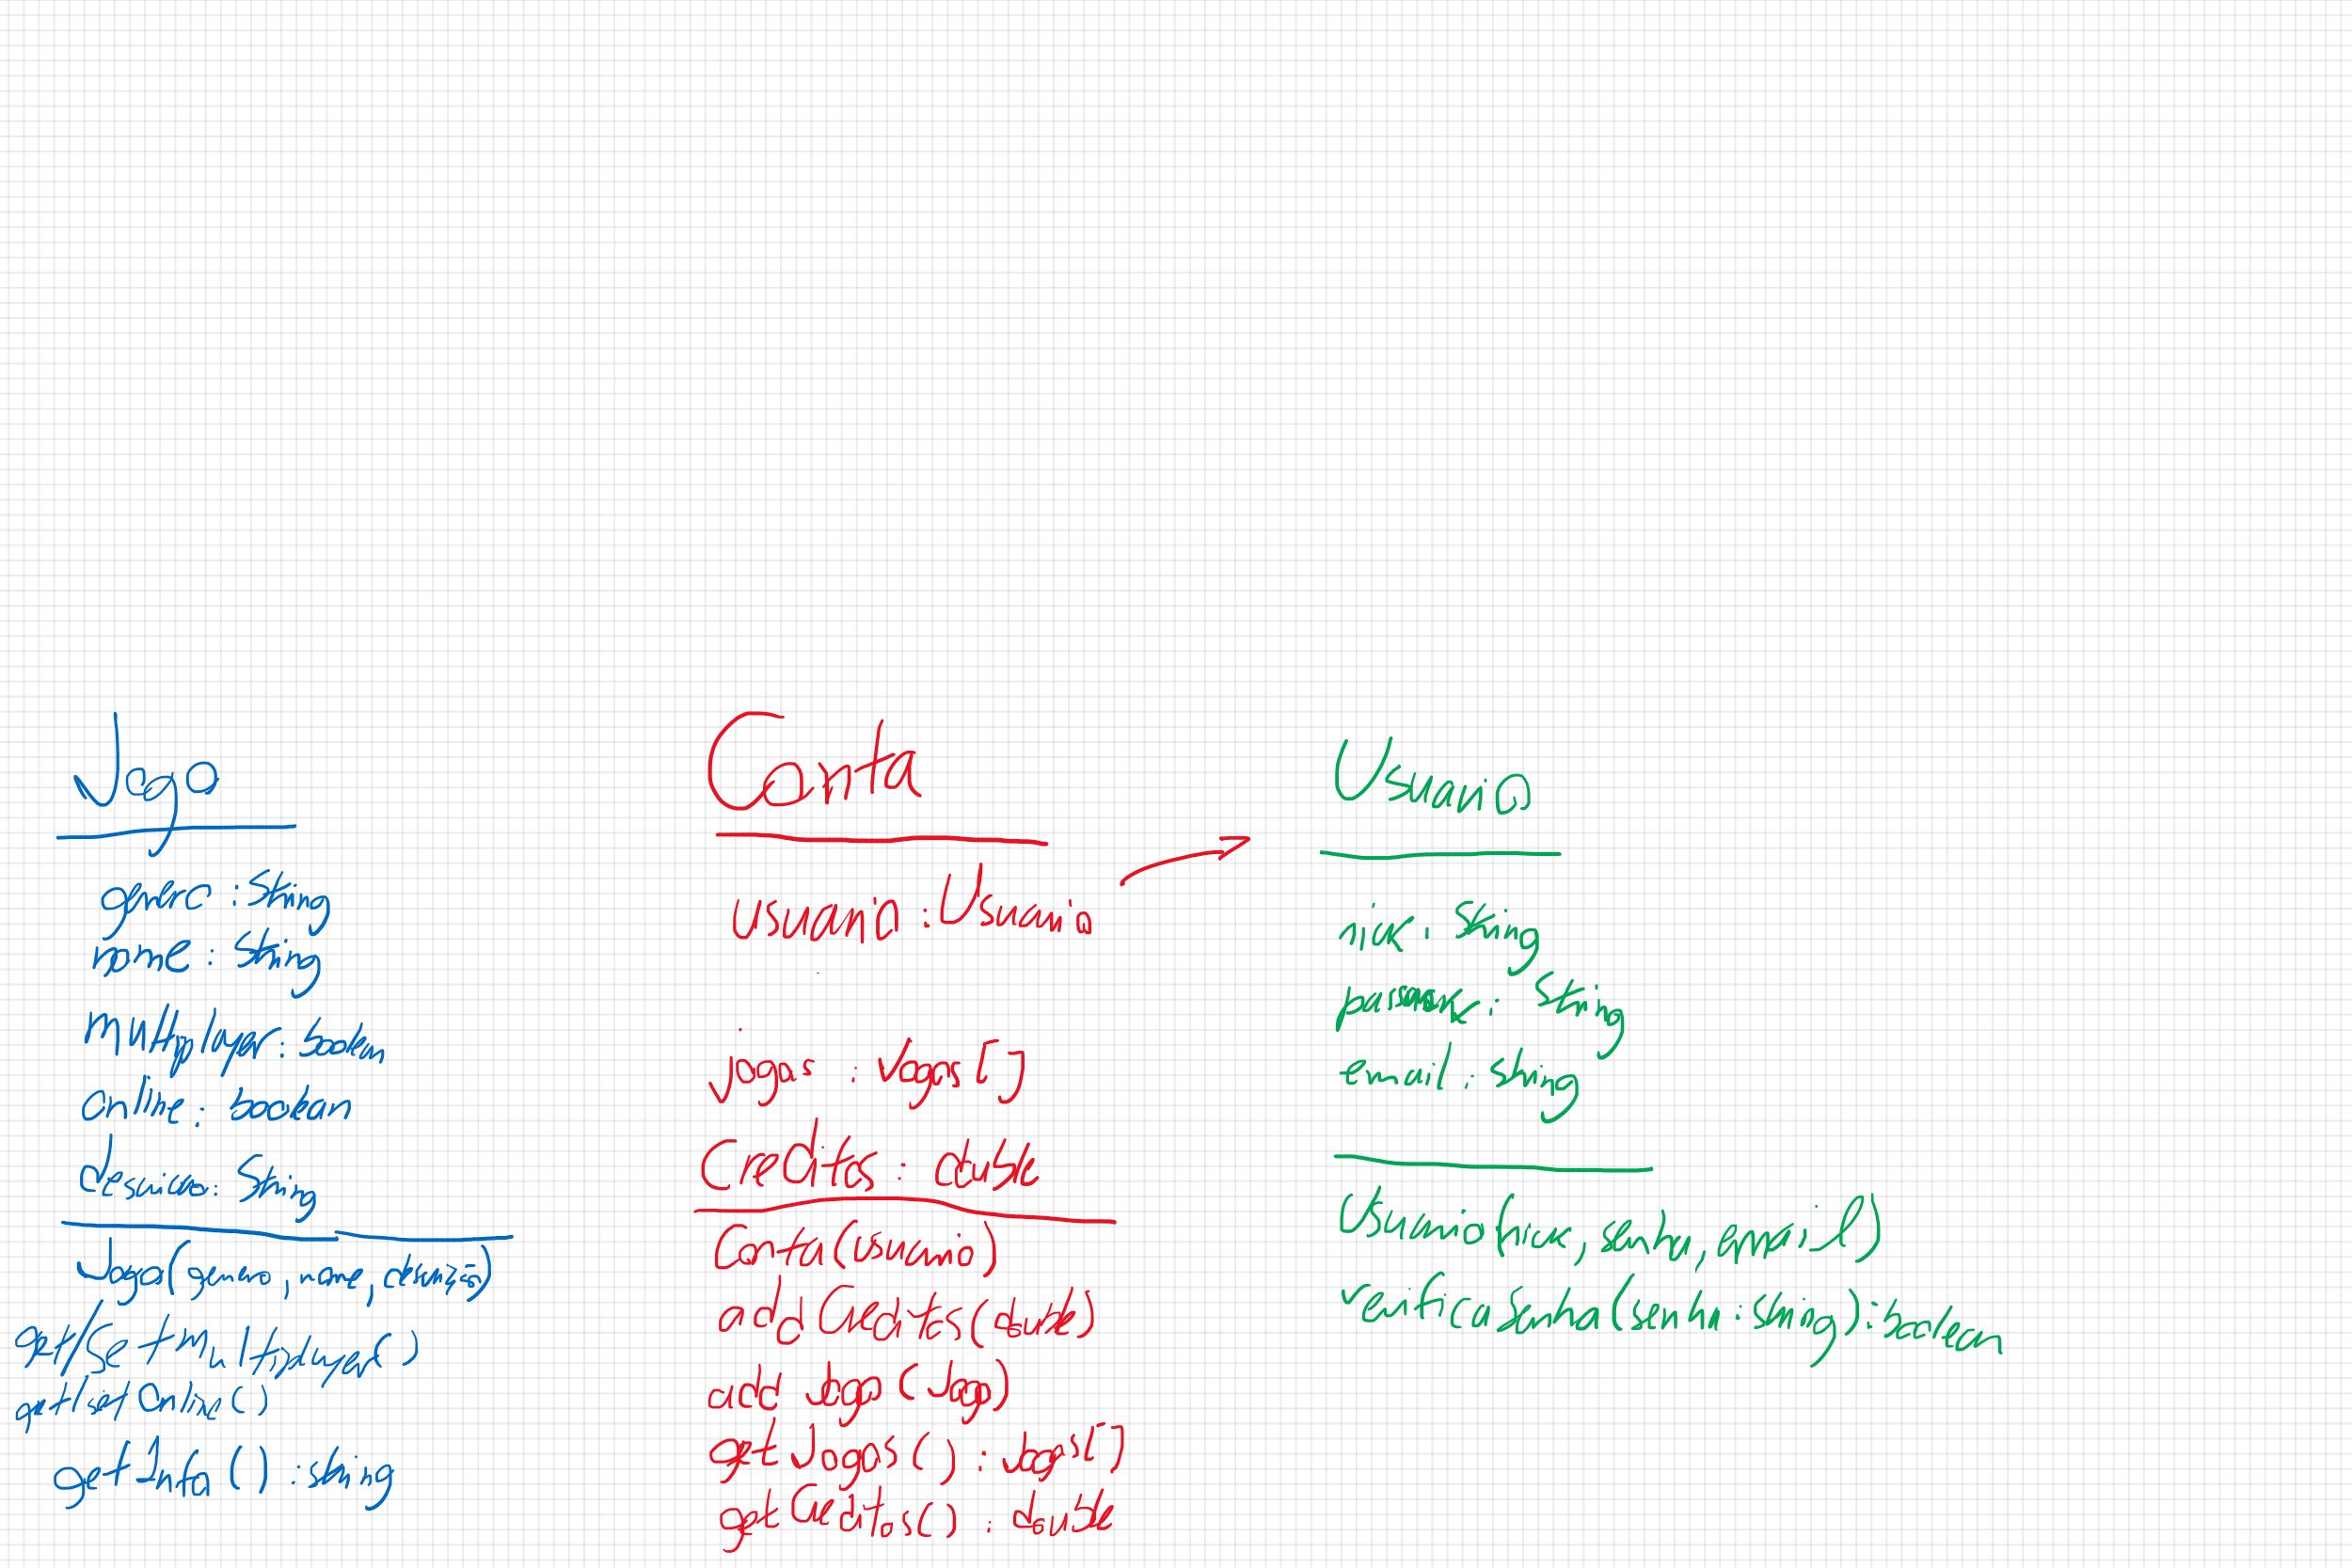 Jogo
genero : String
nome : String
multiplayer : boolean
online : boolean
descricao : String
Jogo(genero, nome, descrição)
get/set multiplayer()
get/set Online()
getInfo() : string
Conta
usuario : Usuario
jogos : Jogos[]
Creditos : double
Conta(usuario)
addCreditos(double)
add Jogo(Jogo)
getJogos() : Jogos[]
getCreditos() : double
Usuario
nick : String
: String
email : String
Usuario(nick, senha, email)
verificaSenha(senha : string) : boolean